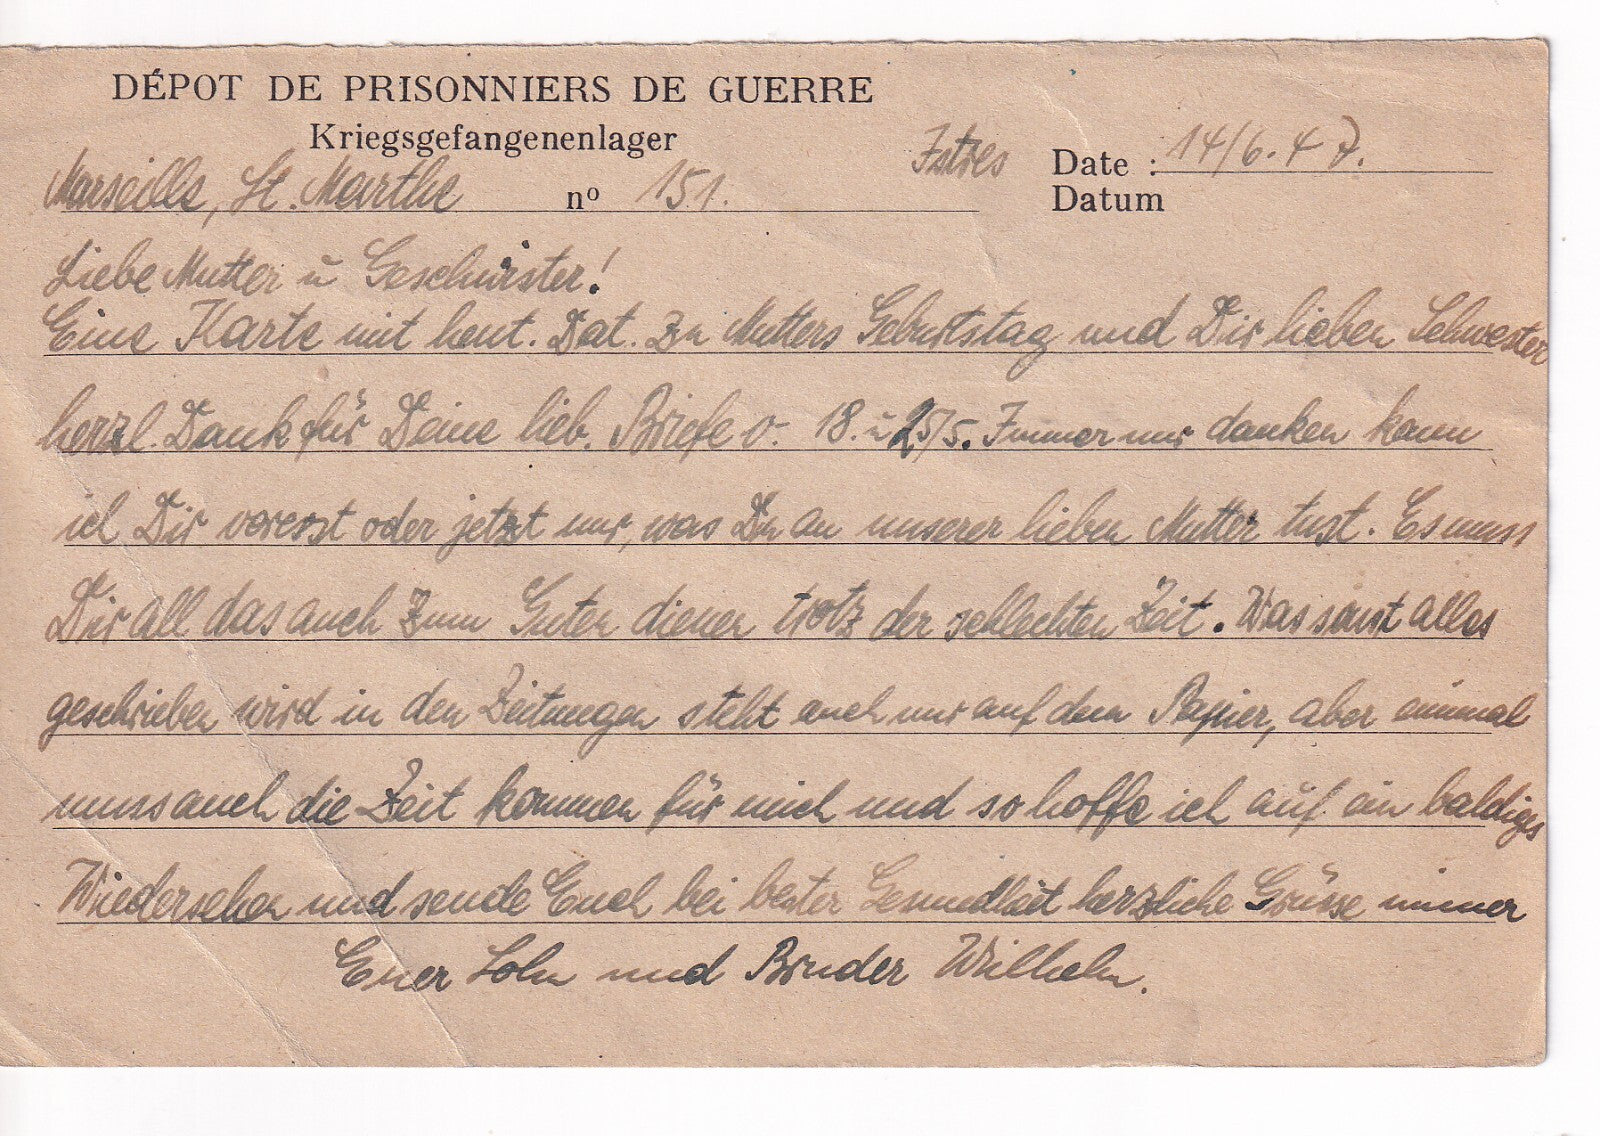 DÉPOT DE PRISONNIERS DE GUERRE
Kriegsgefangenenlager
Marseille, St. Marthe nº 151. Istres Date : 14/6.47.
Datum
Liebe Mutter u Geschwister!
Eine Karte mit heut. Dat. Zu Mutters Geburtstag und Dir lieben Schwester
herzl. Dank für Deine lieb. Briefe v. 18. u 25/5. Immer nur danken kann
ich Dir vorerst oder jetzt nur, was Du an unserer lieben Mutter tust. Es muss
Dir all das auch zum Guten dienen trotz der schlechten Zeit. Was sonst alles
geschrieben wird in den Zeitungen steht auch nur auf dem Papier, aber einmal
muss auch die Zeit kommen für mich und so hoffe ich auf ein baldiges
Wiedersehen und sende Euch bei bester Gesundheit herzliche Grüsse immer
Euer Sohn und Bruder Wilhelm.